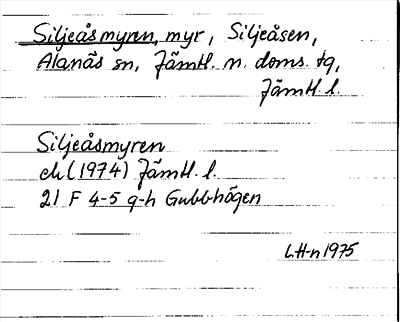 Siljeåsmyren, myr, Siljeåsen,
Alanäs sn, Jämtl. n. doms. tg,
Jämtl. l.
Siljeåsmyren
ek (1974) Jämtl. l.
21 F 4-5 g-h Gubbhögen
L.H-n 1975